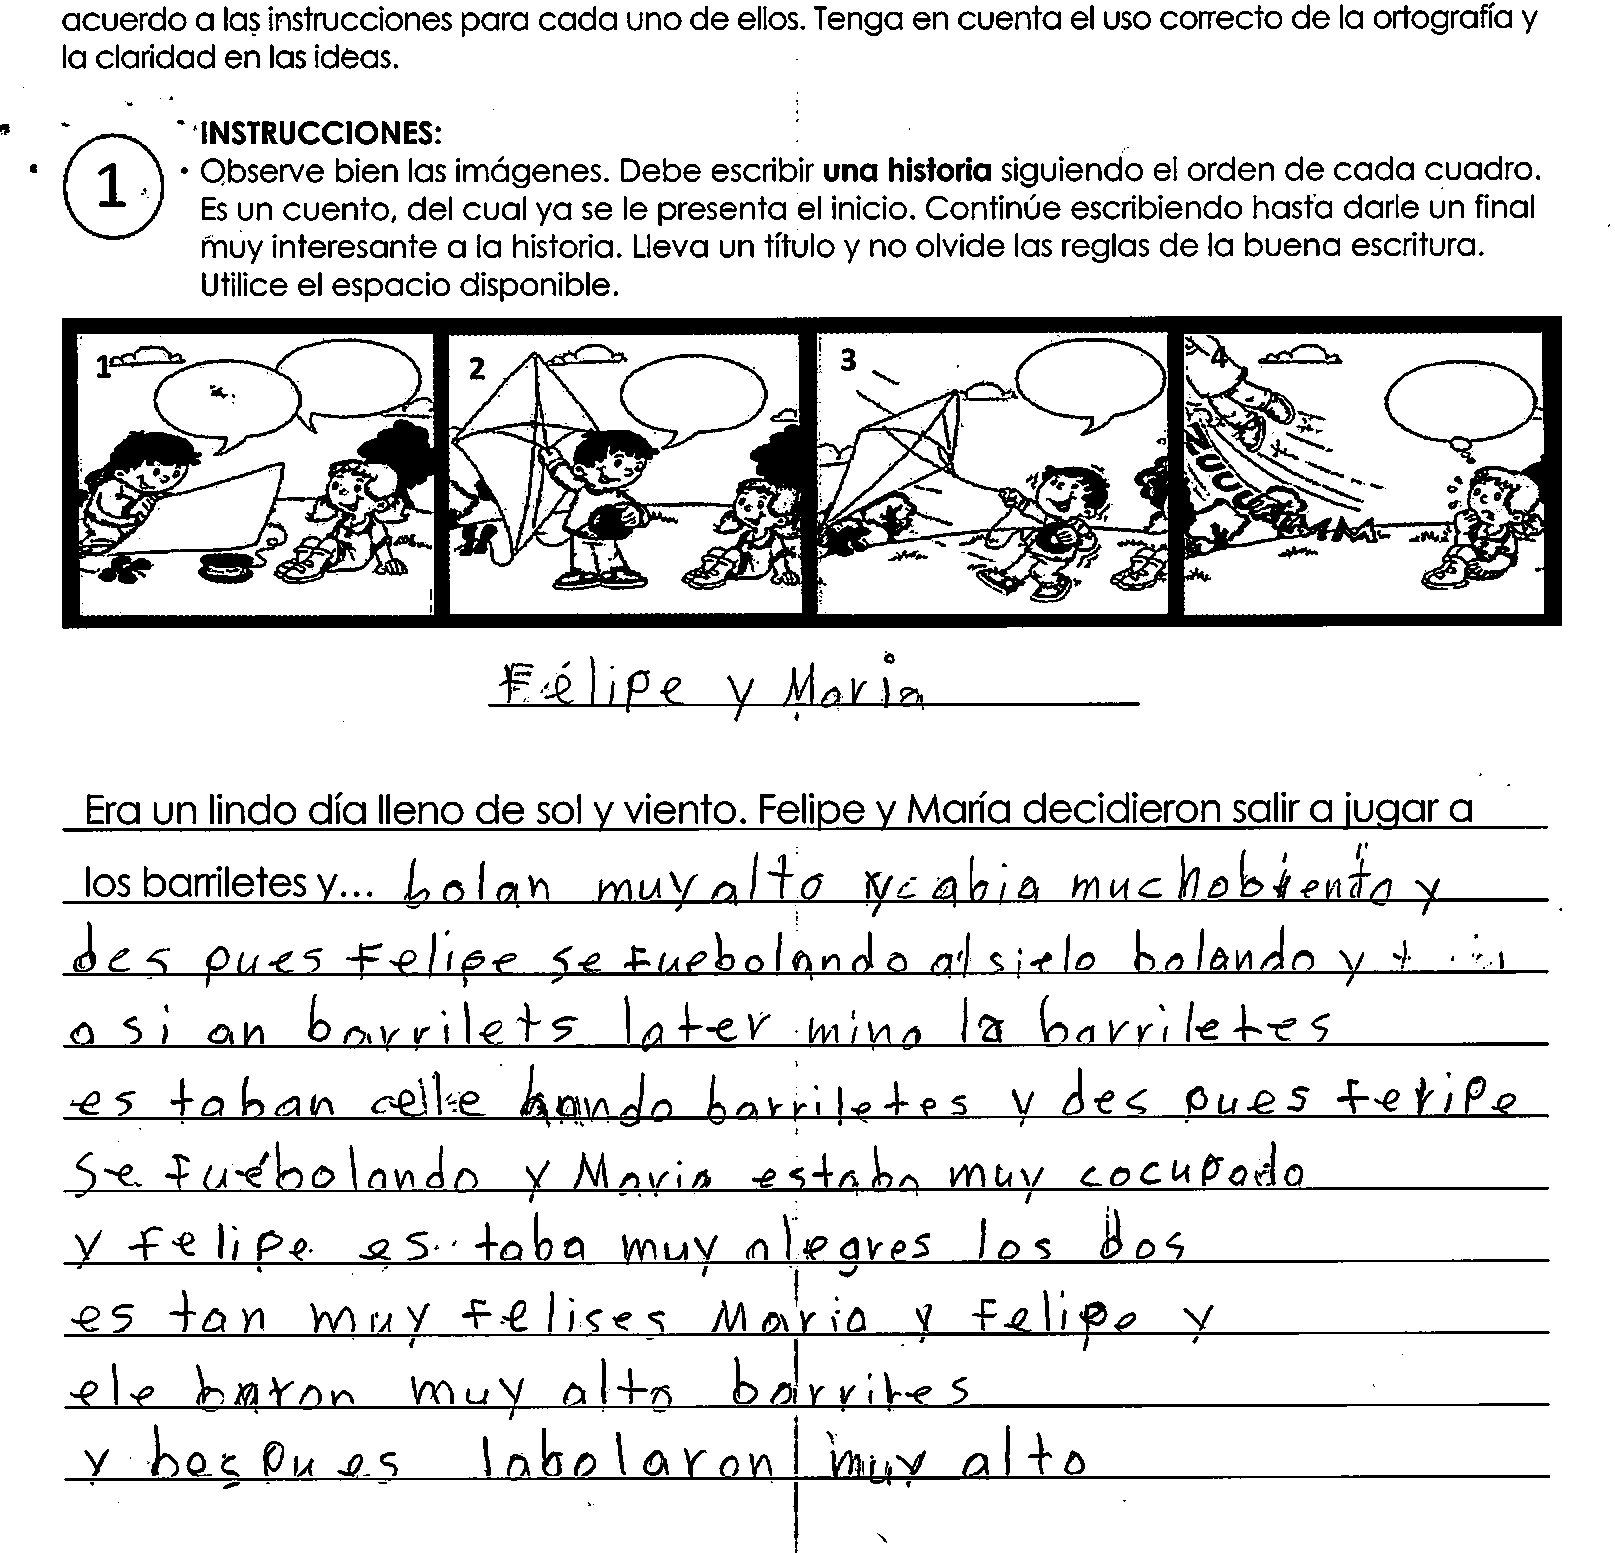 acuerdo a las instrucciones para cada uno de ellos. Tenga en cuenta el uso correcto de la ortografía y
la claridad en las ideas.
INSTRUCCIONES:
1
• Observe bien las imágenes. Debe escribir una historia siguiendo el orden de cada cuadro.
Es un cuento, del cual ya se le presenta el inicio. Continúe escribiendo hasta darle un final
muy interesante a la historia. Lleva un título y no olvide las reglas de la buena escritura.
Utilice el espacio disponible.
1 2 3 4
ZUUUUMMM
Félipe y Maria
Era un lindo día lleno de sol y viento. Felipe y María decidieron salir a jugar a
los barriletes y... bolan muy alto y cabia muchobiento y
des pues Felipe se fuebolando al sielo bolando y
asi an barrilets later mino la barriletes
es taban barriletes y des pues felipe
se fuébolando y Maria estaba muy cocupado
y felipe es taba muy alegres los dos
es tan muy felises Maria y felipe y
ele baron muy alto barrites
y bespues labolaron muy alto